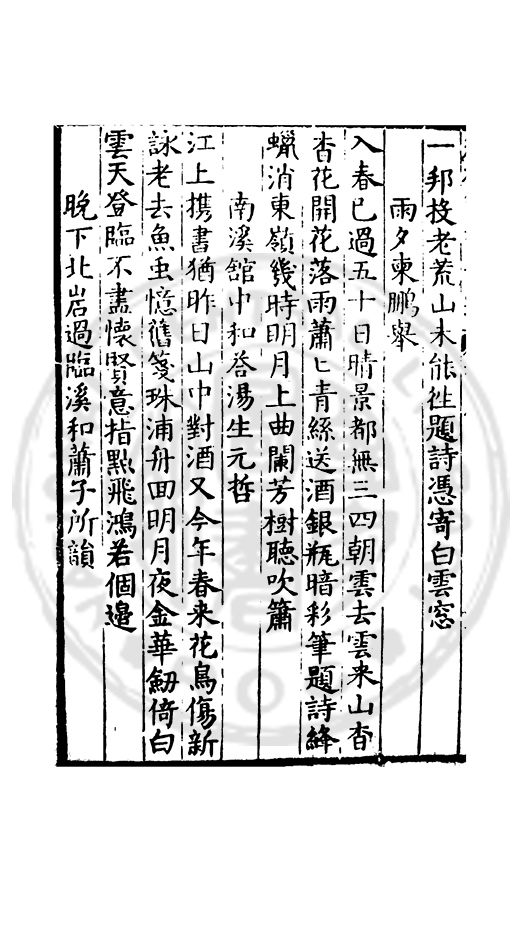 一邦投老荒山未能徃題詩憑寄白雲窓
雨夕柬鵬舉
入春已過五十日晴景都無三四朝雲去雲来山杳
杳花開花落雨蕭匕青絲送酒銀瓶暗彩筆題詩絳
蠟消東嶺幾時明月上曲闌芳樹聽吹簫
南溪舘中和荅湯生元哲
江上携書猶昨日山中對酒又今年春来花鳥傷新
詠老去魚䖝憶舊箋珠浦舟回明月夜金華劒倚白
雲天登臨不盡懷賢意指㸃飛鴻若個邉
晚下北岩過臨溪和蕭子所韻